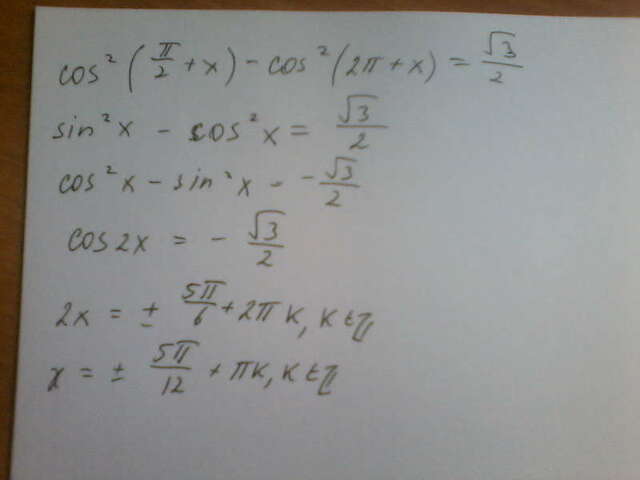 cos²(π/2 + x) - cos²(2π + x) = √3/2
sin²x - cos²x = √3/2
cos²x - sin²x - -√3/2
cos2x = - √3/2
2x = ± 5π/6 + 2πk, k ∈ Z
x = ± 5π/12 + πk, k ∈ Z